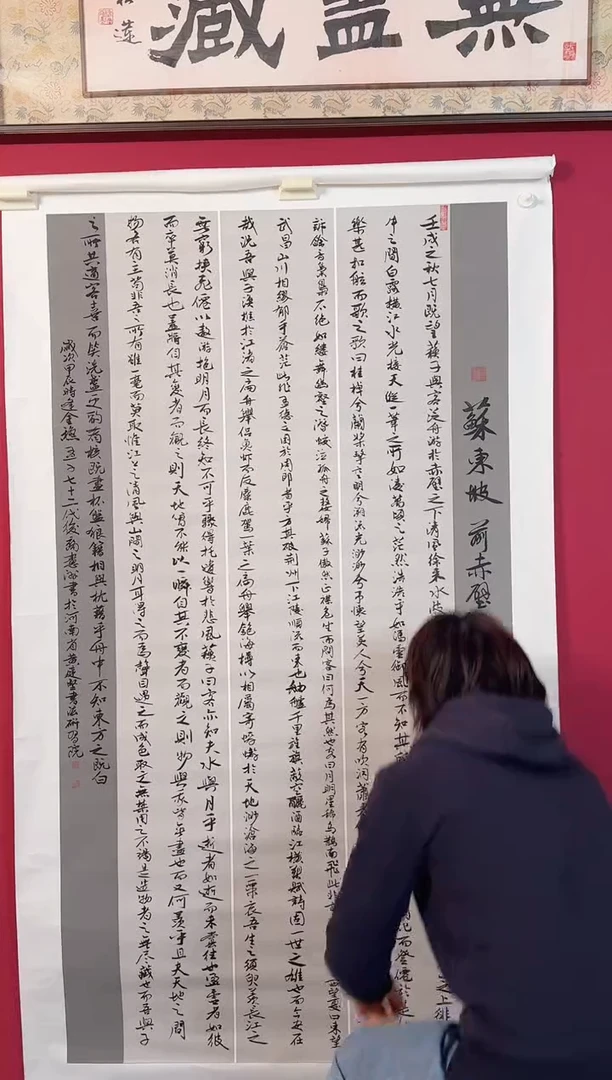 無盡藏
蓮
蘇東坡 前赤壁
壬戌之秋七月既望蘇子與客泛舟游於赤壁之下清風徐來水波 之上徘
牛之間白露橫江水光接天縱一葦之所如凌萬頃之茫然浩浩乎如馮虛御風而不知其 化而登僊於是
樂甚扣舷而歌之歌曰桂棹兮蘭槳擊空明兮泝流光渺渺兮予懷望美人兮天一方客有吹洞簫者
訴餘音裊裊不絕如縷舞幽壑之潛蛟泣孤舟之嫠婦蘇子愀然正襟危坐而問客曰何為其然也客曰月明星稀烏鵲南飛此非 西望夏口東望
武昌山川相繆郁乎蒼蒼此非孟德之困於周郎者乎方其破荊州下江陵順流而東也舳艫千里旌旗蔽空釃酒臨江橫槊賦詩固一世之雄也而今安在
哉況吾與子漁樵於江渚之上侶魚蝦而友麋鹿駕一葉之扁舟舉匏樽以相屬寄蜉蝣於天地渺滄海之一粟哀吾生之須臾羨長江之
無窮挾飛僊以遨游抱明月而長終知不可乎驟得托遺響於悲風蘇子曰客亦知夫水與月乎逝者如斯而未嘗往也盈虛者如彼
而卒莫消長也蓋將自其變者而觀之則天地曾不能以一瞬自其不變者而觀之則物與我皆無盡也而又何羨乎且夫天地之間
物各有主苟非吾之所有雖一毫而莫取惟江上之清風與山間之明月耳得之而為聲目遇之而成色取之無禁用之不竭是造物者之無盡藏也而吾與子
之所共適客喜而笑洗盞更酌肴核既盡杯盤狼籍相與枕藉乎舟中不知東方之既白
歲次甲辰時逢金秋 七十二代後裔 書於河南省黃庭堅書法研習院